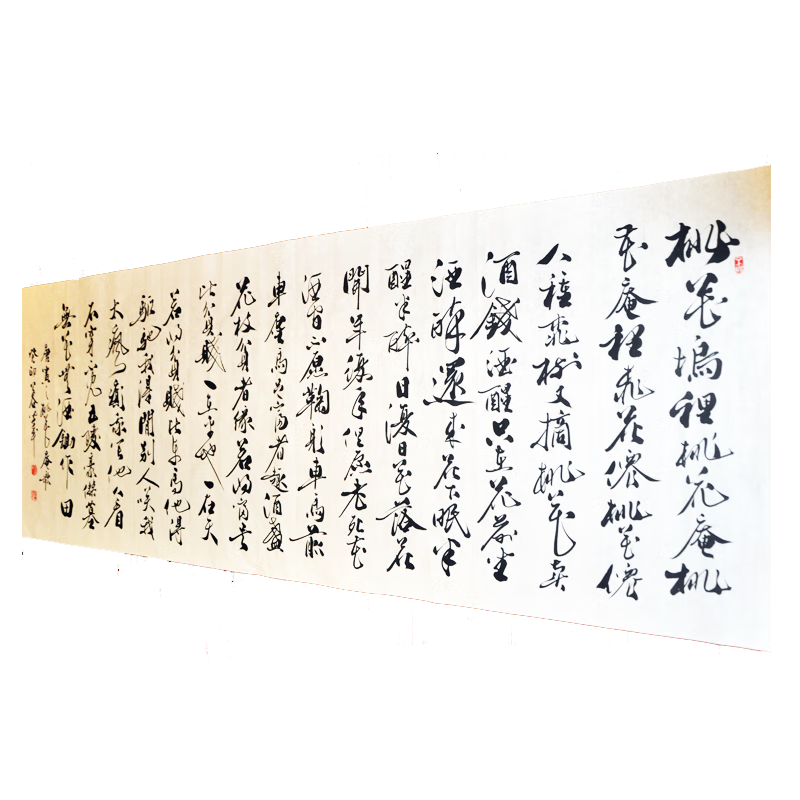 桃花塢裡桃花庵桃
花庵裡桃花僊桃花僊
人種桃樹又摘桃花賣
酒錢酒醒只在花前坐
酒醉還來花下眠半
醒半醉日復日花落花
開年復年但願老死花
酒間不願鞠躬車馬前
車塵馬足富者趣酒盞
花枝貧者緣若將富貴
比貧賤一在平地一在天
若將貧賤比車馬他得
驅馳我得閒別人笑我
太瘋癲我笑他人看
不穿不見五陵豪傑墓
無花無酒鋤作田
唐寅之桃花庵歌
癸卯春